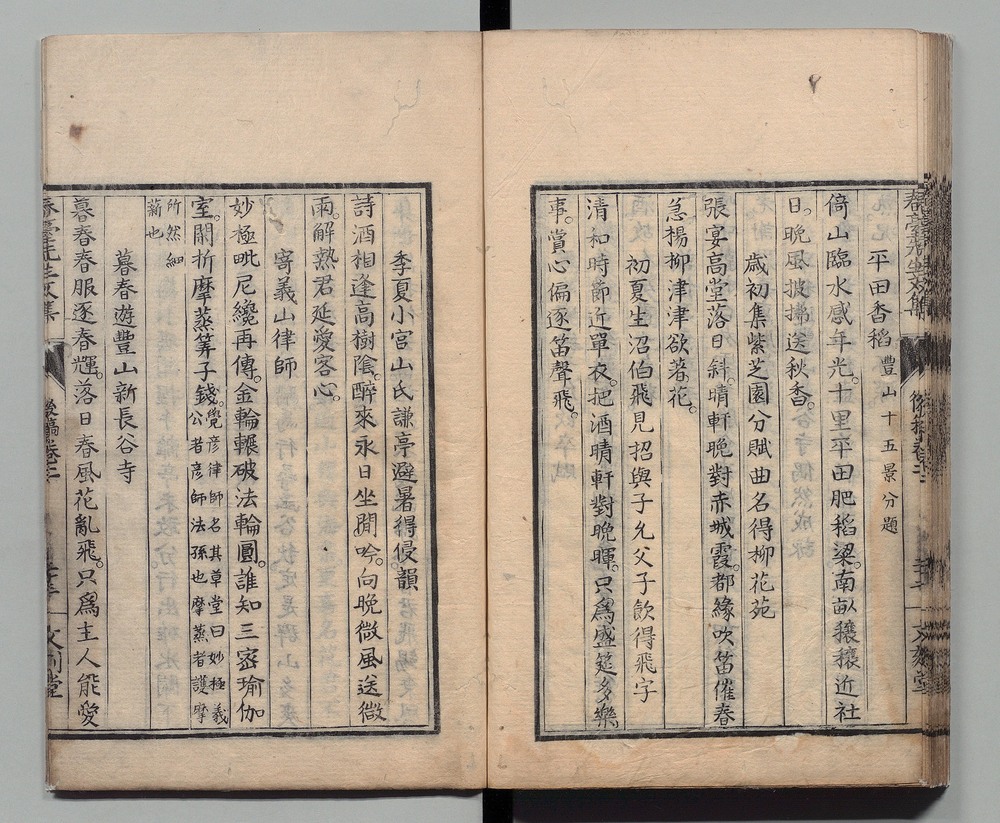 平田香稻 豐山十五景分題
倚山臨水感年光。十里平田肥稻粱。南畝穰穰近社
日。晚風披拂送秋香。
歲初集紫芝園分賦曲名得柳花苑
張宴高堂落日斜。晴軒晚對赤城霞。都緣吹笛催春
急。楊柳津津欲著花。
初夏生沼伯飛見招與子允父子飲得飛字
清和時節近單衣。把酒晴軒對晚暉。只爲盛筵多樂
事。賞心偏逐笛聲飛。
季夏小宮山氏謙亭避暑得侵韻
詩酒相逢高樹陰。醉來永日坐閒吟。向晚微風送微
雨。解熱君延愛客心。
寄義山律師
妙極毗尼纔再傳。金輪輾破法輪圓。誰知三密瑜伽
室。閑折摩蒸筭子錢。覺彦律師名其草堂曰妙極義
公者彦師法孫也摩蒸者護摩
所然細
薪也
暮春遊豐山新長谷寺
暮春春服逐春輝。落日春風花亂飛。只爲主人能愛
春臺先生文集
後稿卷二